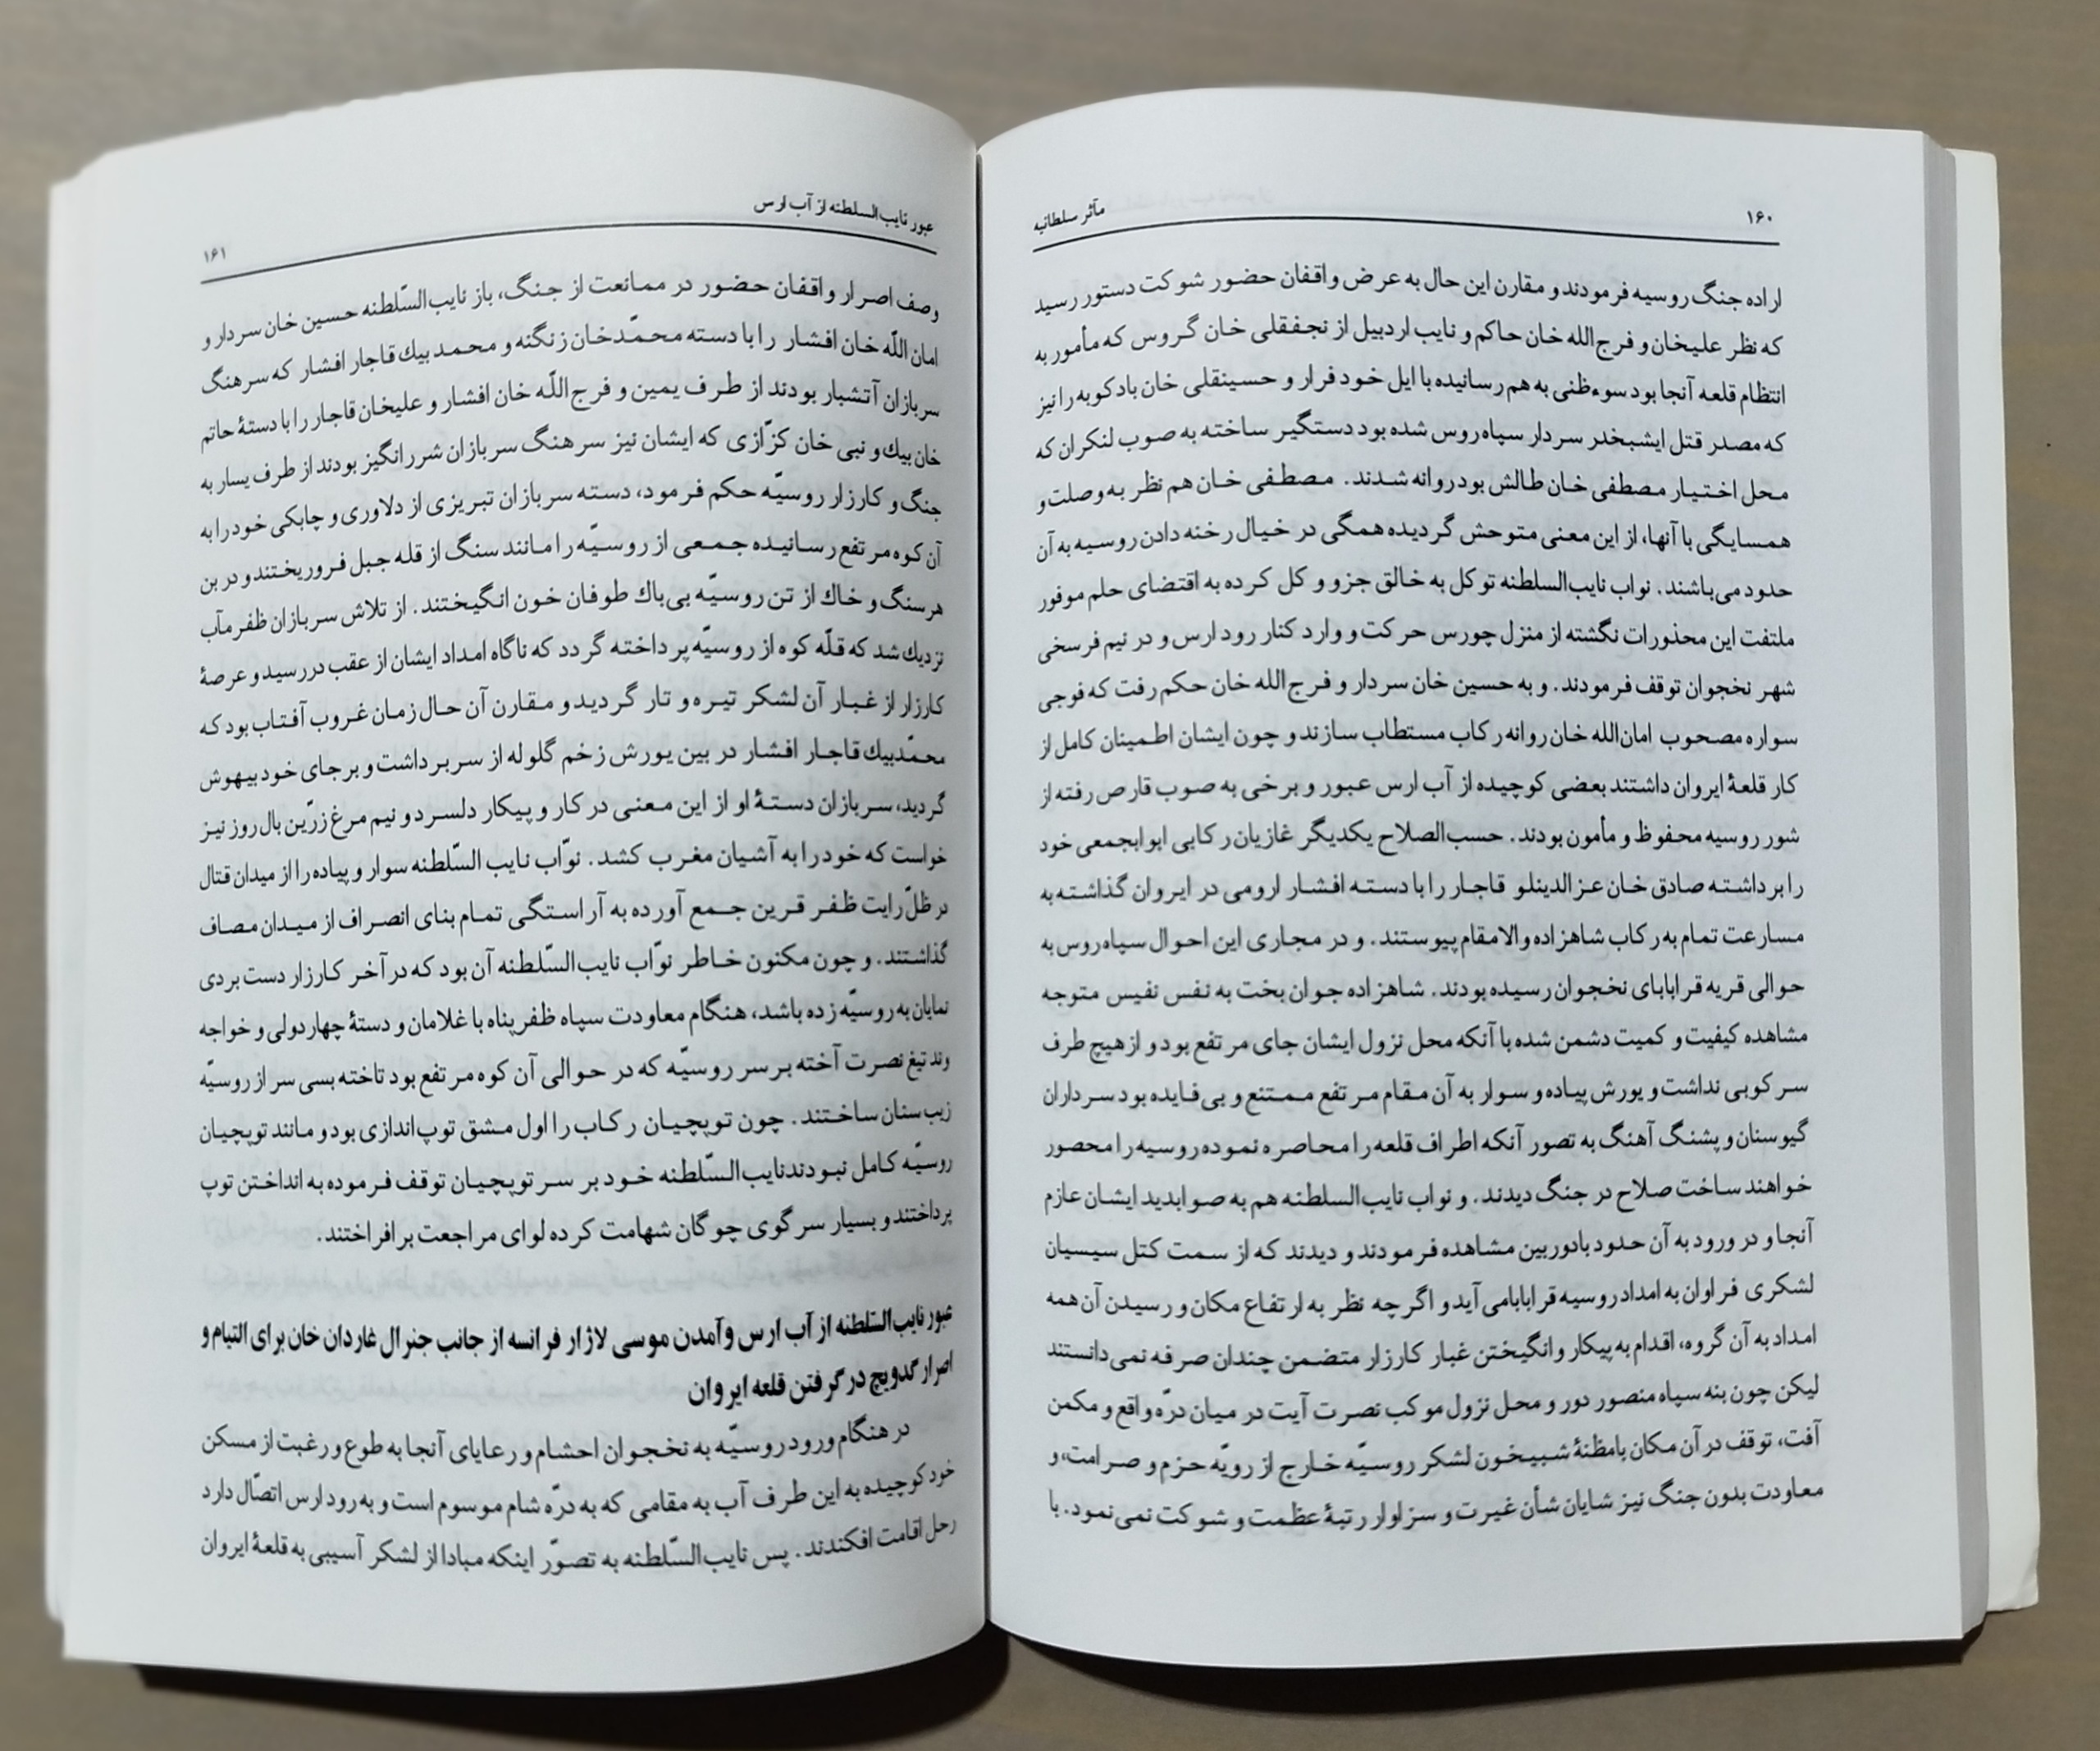 ۱۶۰
مآثر سلطانیه
اراده جنگ روسیه فرمودند و مقارن این حال به عرض واقفان حضور شوکت دستور رسید
که نظر علیخان و فرج‌الله خان حاکم و نایب اردبیل از نجفقلی خان گروس که مأمور به
انتظام قلعه آنجا بود سوءظنی به هم رسانیده با ایل خود فرار و حسینقلی خان بادکوبه را نیز
که مصدر قتل ایشبخدر سردار سپاه روس شده بود دستگیر ساخته به صوب لنکران که
محل اختیار مصطفی خان طالش بود روانه شدند. مصطفی خان هم نظر به وصلت و
همسایگی با آنها، از این معنی متوحش گردیده همگی در خیال رخنه دادن روسیه به آن
حدود می‌باشند. نواب نایب‌السلطنه توکل به خالق جزو و کل کرده به اقتضای حلم موفور
ملتفت این محذورات نگشته از منزل چورس حرکت و وارد کنار رود ارس و در نیم فرسخی
شهر نخجوان توقف فرمودند. و به حسین خان سردار و فرج‌الله خان حکم رفت که فوجی
سواره مصحوب امان‌الله خان روانه رکاب مستطاب سازند و چون ایشان اطمینان کامل از
کار قلعهٔ ایروان داشتند بعضی کوچیده از آب ارس عبور و برخی به صوب قارص رفته از
شور روسیه محفوظ و مأمون بودند. حسب‌الصلاح یکدیگر غازیان رکابی ابوابجمعی خود
را برداشته صادق خان عزالدینلو قاجار را با دسته افشار ارومی در ایروان گذاشته به
مسارعت تمام به رکاب شاهزاده والامقام پیوستند. و در مجاری این احوال سپاه روس به
حوالی قریه قرابابای نخجوان رسیده بودند. شاهزاده جوان بخت به نفس نفیس متوجه
مشاهده کیفیت و کمیت دشمن شده با آنکه محل نزول ایشان جای مرتفع بود و از هیچ طرف
سرکوبی نداشت و یورش پیاده و سوار به آن مقام مرتفع ممتنع و بی‌فایده بود سرداران
گیوسنان و پشنگ آهنگ به تصور آنکه اطراف قلعه را محاصره نموده روسیه را محصور
خواهند ساخت صلاح در جنگ دیدند. و نواب نایب‌السلطنه هم به صوابدید ایشان عازم
آنجا و در ورود به آن حدود با دوربین مشاهده فرمودند و دیدند که از سمت کتل سیسیان
لشکری فراوان به امداد روسیه قرابابا می‌آید و اگر چه نظر به ارتفاع مکان و رسیدن آن همه
امداد به آن گروه، اقدام به پیکار و انگیختن غبار کارزار متضمن چندان صرفه نمی‌دانستند
لیکن چون بنه سپاه منصور دور و محل نزول موکب نصرت آیت در میان درّه واقع و مکمن
آفت، توقف در آن مکان بامظنهٔ شبیخون لشکر روسیّه خارج از رویّه حزم و صرامت، و
معاودت بدون جنگ نیز شایان شأن غیرت و سزاوار رتبهٔ عظمت و شوکت نمی‌نمود. با
عبور نایب‌السلطنه از آب ارس
۱۶۱
وصف اصرار واقفان حضور در ممانعت از جنگ، باز نایب‌السّلطنه حسین خان سردار و
امان اللّه خان افشار را با دسته محمّدخان زنگنه و محمد بیك قاجار افشار که سرهنگ
سربازان آتشبار بودند از طرف یمین و فرج اللّه خان افشار و علیخان قاجار را با دستهٔ حاتم
خان بیك و نبی خان کزّازی که ایشان نیز سرهنگ سربازان شررانگیز بودند از طرف یسار به
جنگ و کارزار روسیّه حکم فرمود، دسته سربازان تبریزی از دلاوری و چابکی خود را به
آن کوه مرتفع رسانیده جمعی از روسیّه را مانند سنگ از قله جبل فرو ریختند و در بن
هر سنگ و خاك از تن روسیّه بی‌باك طوفان خون انگیختند. از تلاش سربازان ظفر مآب
نزدیك شد که قلّه کوه از روسیّه پرداخته گردد که ناگاه امداد ایشان از عقب در رسید و عرصهٔ
کارزار از غبار آن لشکر تیره و تار گردید و مقارن آن حال زمان غروب آفتاب بود که
محمّدبیك قاجار افشار در بین یورش زخم گلوله از سر برداشت و بر جای خود بیهوش
گردید، سربازان دستهٔ او از این معنی در کار و پیکار دلسرد و نیم مرغ زرّین بال روز نیز
خواست که خود را به آشیان مغرب کشد. نوّاب نایب السّلطنه سوار و پیاده را از میدان قتال
در ظلّ رایت ظفر قرین جمع آورده به آراستگی تمام بنای انصراف از میدان مصاف
گذاشتند. و چون مکنون خاطر نوّاب نایب‌السّلطنه آن بود که در آخر کارزار دست بردی
نمایان به روسیّه زده باشد، هنگام معاودت سپاه ظفرپناه با غلامان و دستهٔ چهاردولی و خواجه
وند تیغ نصرت آخته بر سر روسیّه که در حوالی آن کوه مرتفع بود تاخته بسی سر از روسیّه
زیب سنان ساختند. چون توپچیان رکاب را اول مشق توپ‌اندازی بود و مانند توپچیان
روسیّه کامل نبودند نایب‌السّلطنه خود بر سر توپچیان توقف فرموده به انداختن توپ
پرداختند و بسیار سر گوی چوگان شهامت کرده لوای مراجعت برافراختند.
عبور نایب‌السّلطنه از آب ارس و آمدن موسی لاژار فرانسه از جانب جنرال غاردان خان برای التیام و
اصرار گدویچ در گرفتن قلعه ایروان
در هنگام ورود روسیّه به نخجوان احشام و رعایای آنجا به طوع و رغبت از مسکن
خود کوچیده به این طرف آب به مقامی که به درّه شام موسوم است و به رود ارس اتصّال دارد
رحل اقامت افکندند. پس نایب‌السّلطنه به تصوّر اینکه مبادا از لشکر آسیبی به قلعهٔ ایروان